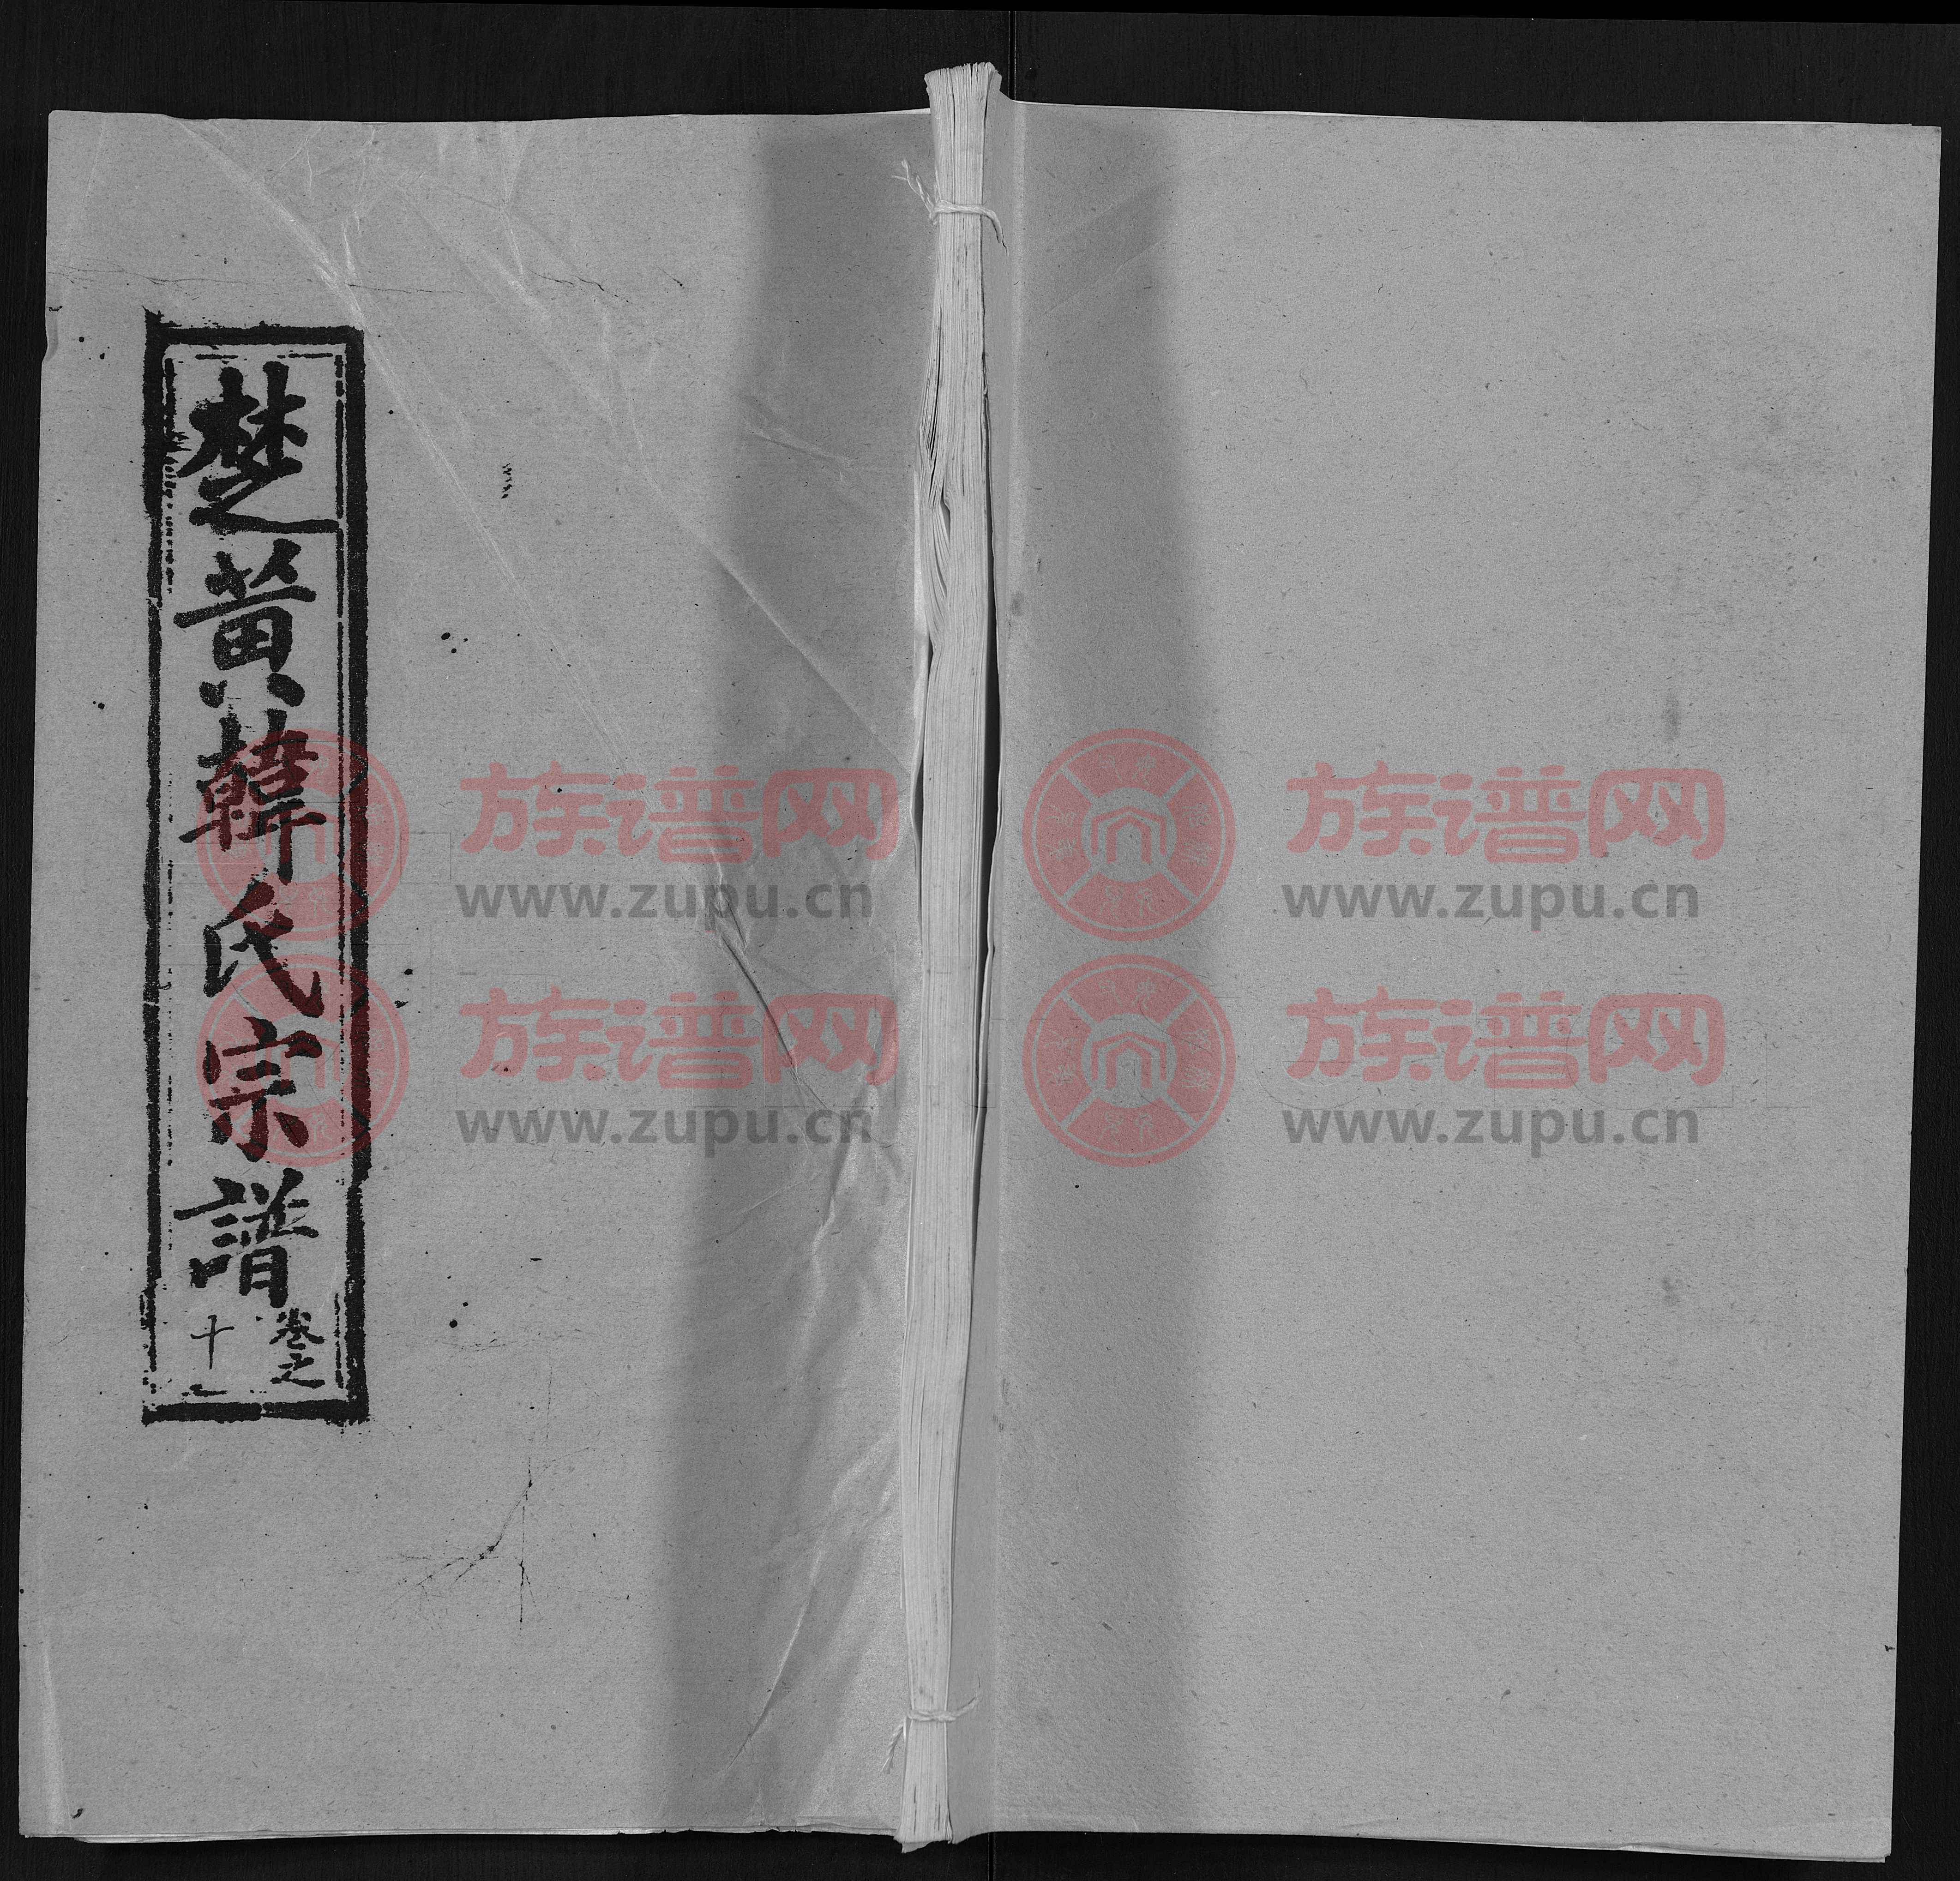 楚黄韓氏宗譜
卷之
十
族谱网
www.zupu.cn
族谱网
www.zupu.cn
族谱网
www.zupu.cn
族谱网
www.zupu.cn